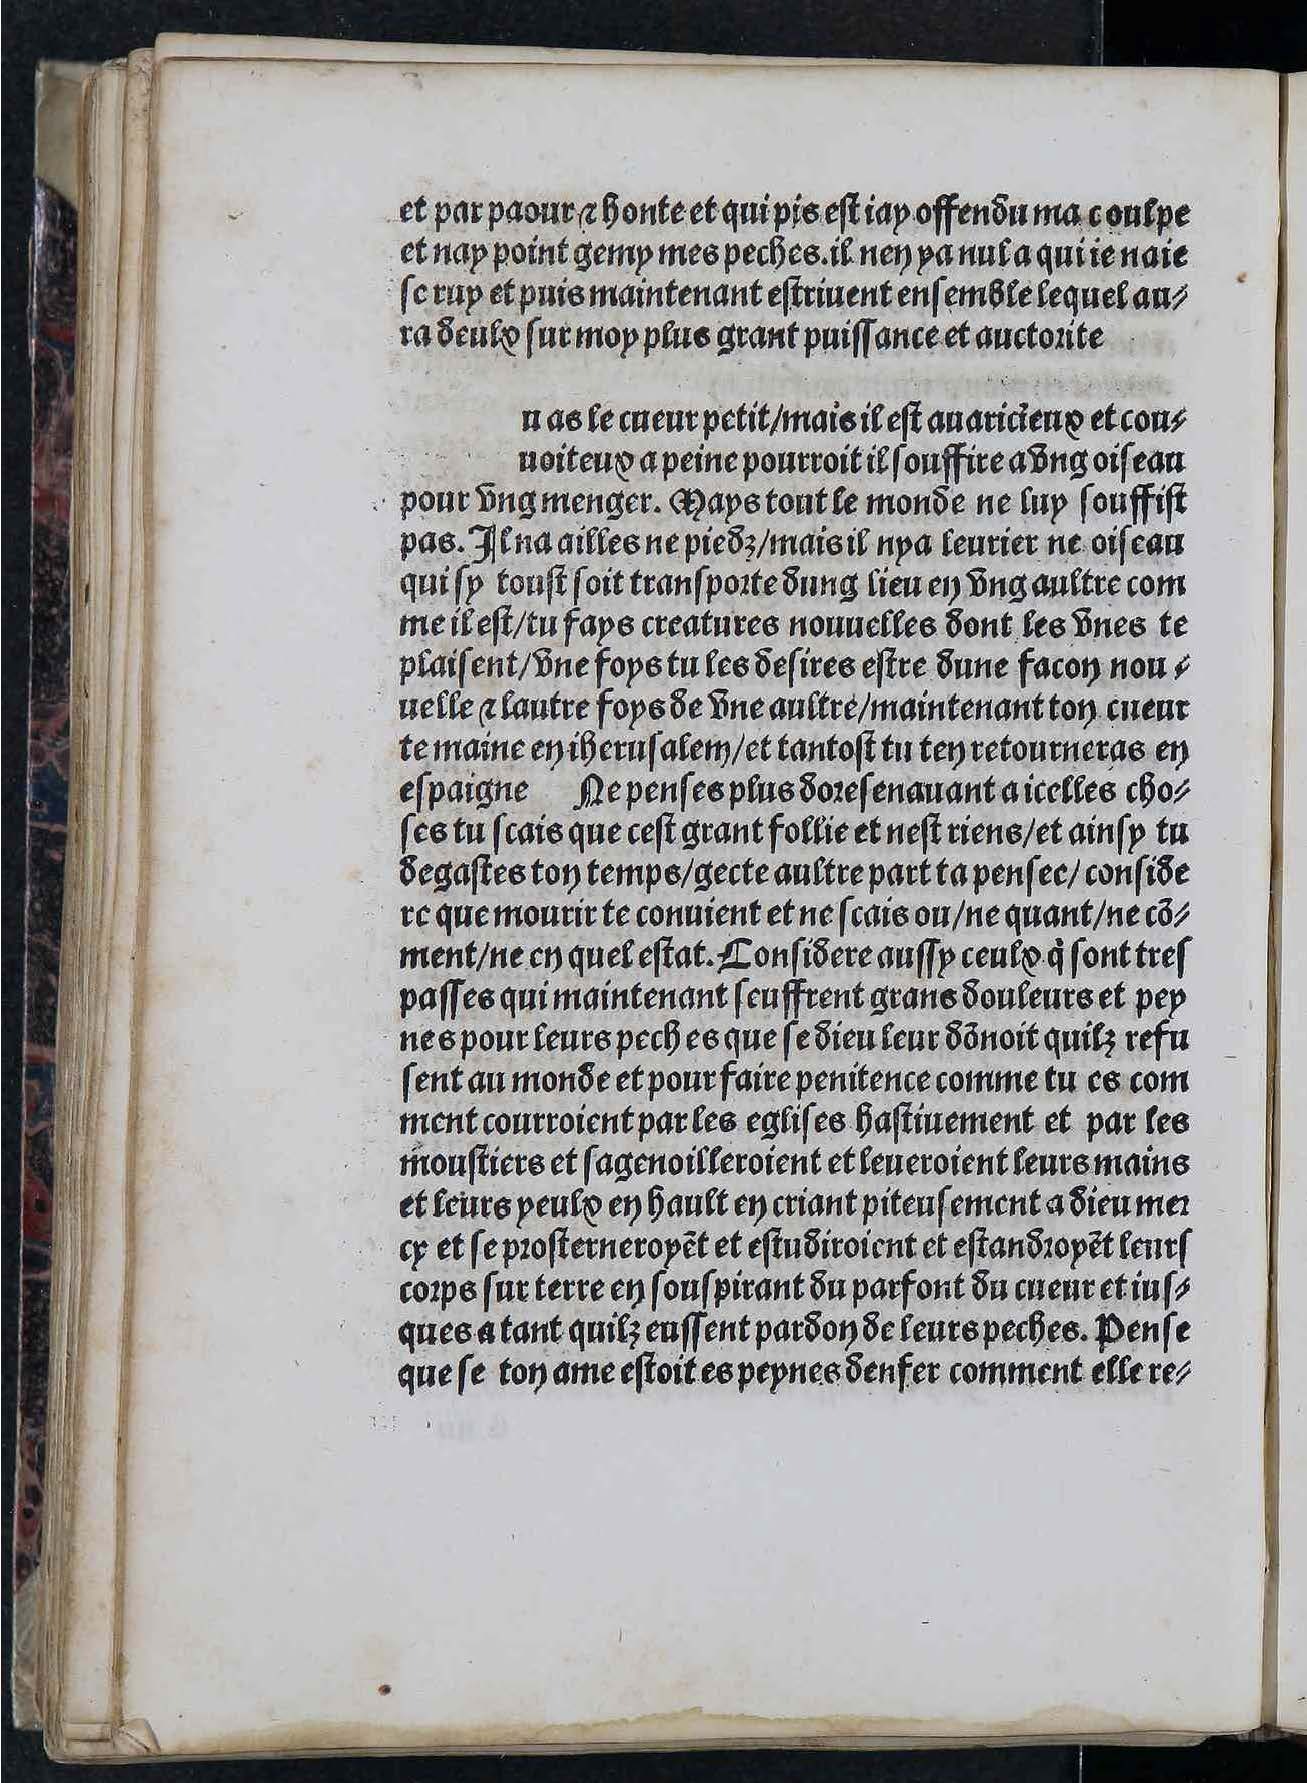 et par paour ⁊ honte et qui pis est iay offendu ma coulpe
et nay point gemy mes peches. il nen ya nul a qui ie naie
seruy et puis maintenant estriuent ensemble lequel au⸗
ra deulx sur moy plus grant puissance et auctorite
u as le cueur petit/mais il est auaricieux et cou⸗
uoiteux a peine pourroit il souffire a vng oiseau
pour vng menger. Mays tout le monde ne luy souffist
pas. Il na ailles ne piedz/mais il nya leurier ne oiseau
qui sy toust soit transporte dung lieu en vng aultre com
me il est/tu fays creatures nouuelles dont les vnes te
plaisent/vne foys tu les desires estre dune facon nou⸗
uelle ⁊ lautre foys de vne aultre/maintenant ton cueur
te maine en iherusalem/et tantost tu ten retourneras en
espaigne Ne penses plus doresenauant a icelles cho⸗
ses tu scais que cest grant follie et nest riens/et ainsy tu
degastes ton temps/gecte aultre part ta pensee/conside
re que mourir te conuient et ne scais ou/ne quant/ne cõ⸗
ment/ne en quel estat. Considere aussy ceulx q̃ sont tres
passes qui maintenant seuffrent grans douleurs et pey
nes pour leurs peches que se dieu leur dõnoit quilz refu
sent au monde et pour faire penitence comme tu es com
ment courroient par les eglises hastiuement et par les
moustiers et sagenoilleroient et leueroient leurs mains
et leurs yeulx en hault en criant piteusement a dieu mer
cy et se prosterneroyẽt et estudiroient et estandroyẽt leurs
corps sur terre en souspirant du parfont du cueur et ius⸗
ques a tant quilz eussent pardon de leurs peches. Pense
que se ton ame estoit es peynes denfer comment elle re⸗